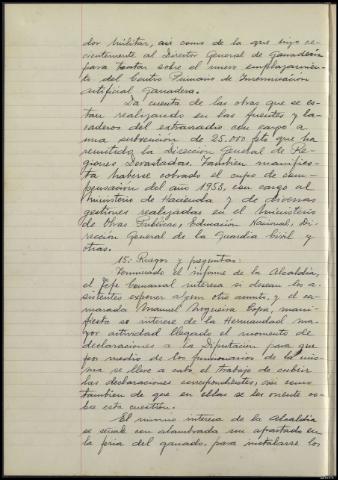 dor militar, asi como de la que hizo re-
cientemente al Director General de Ganaderia
para tratar sobre el nuevo emplazamien-
to del Centro Primario de Inseminación
artificial ganadera.
Da cuenta de las obras que se es-
tan realizando en las fuentes y la-
vaderos del extrarradio con cargo a
una subvención de 25.000 pts que ha
remitido la Dirección General de Re-
giones Devastadas. Tambien manifies-
ta haberse cobrado el cupo de com-
pensación del año 1953, con cargo al
Ministerio de Hacienda y de diversas
gestiones realizadas en el Ministerio
de Obras Públicas, Educación Nacional, Di-
rección General de la Guardia Civil y
otras.
15.- Ruegos y preguntas:
Terminado el informe de la Alcaldia,
el Jefe Comarcal interesa si desean los a-
sistentes exponer algun otro asunto, y el ca-
marada Manuel Nogueira Copa, mani-
fiesta se interese de la Hermandad ma-
yor actividad llegado el momento de
declaraciones a la Diputación para que
por medio de los funcionarios de la mis-
ma se lleve a cabo el trabajo de cubrir
las declaraciones correspondientes, asi como
tambien de que en ellas se les oriente so-
bre esta cuestión.
El mismo interesa de la Alcaldia
se señale con alambrada un apartado en
la feria del ganado, para instalarse los